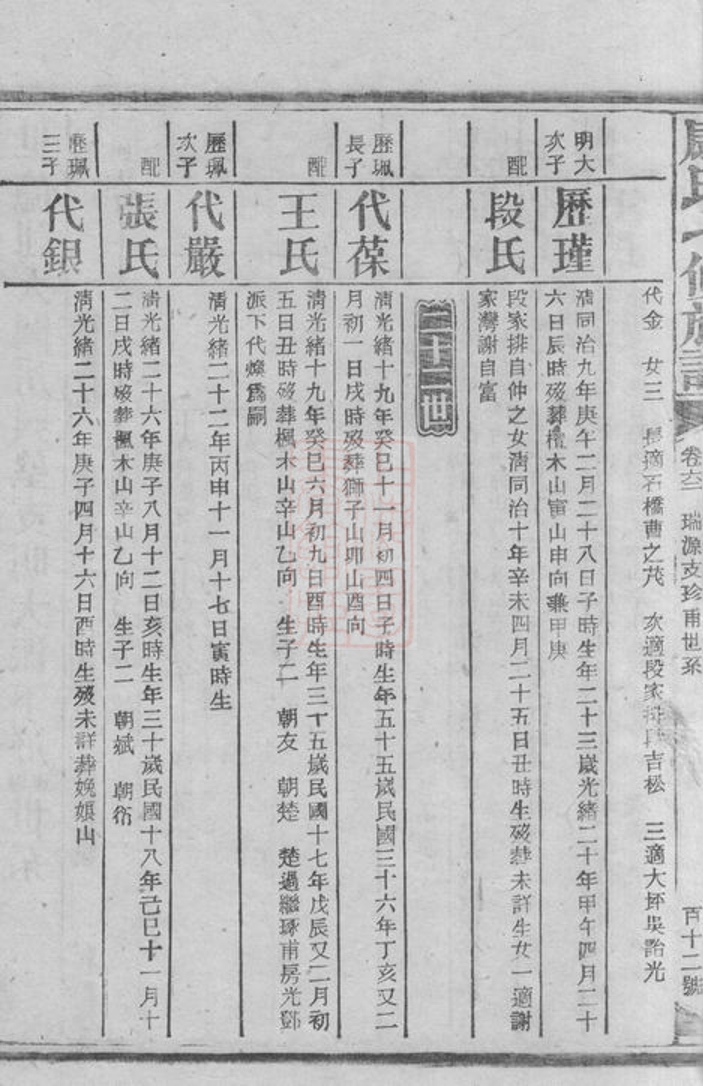 氏
修族譜
卷六二 瑞源支珍甫世系
百十二號
代金 女三 長適石橋曹之茂 次適段家排段吉松 三適大坪吳詒光
明大
次子
歷瑾
清同治九年庚午二月二十八日子時生年二十三歲光緒二十年甲午四月二十
六日辰時歿葬檀木山寅山申向兼甲庚
配
段氏
段家排自仲之女清同治十年辛未四月二十五日丑時生歿葬未詳生女一適謝
家灣謝自富
二十二世
歷珮
長子
代葆
清光緒十九年癸巳十一月初四日子時生年五十五歲民國三十六年丁亥又二
月初一日戌時歿葬獅子山卯山酉向
配
王氏
清光緒十九年癸巳六月初九日酉時生年三十五歲民國十七年戊辰又二月初
五日丑時歿葬楓木山辛山乙向 生子二 朝友 朝楚 楚過繼琢甫房光鄧
派下代燦爲嗣
歷珮
次子
代嚴
清光緒二十二年丙申十一月十七日寅時生
配
張氏
清光緒二十六年庚子八月十二日亥時生年三十歲民國十八年己巳十一月十
二日戌時歿葬楓木山辛山乙向 生子二 朝斌 朝衒
歷珮
三子
代銀
清光緒二十六年庚子四月十六日酉時生歿未詳葬娩娘山